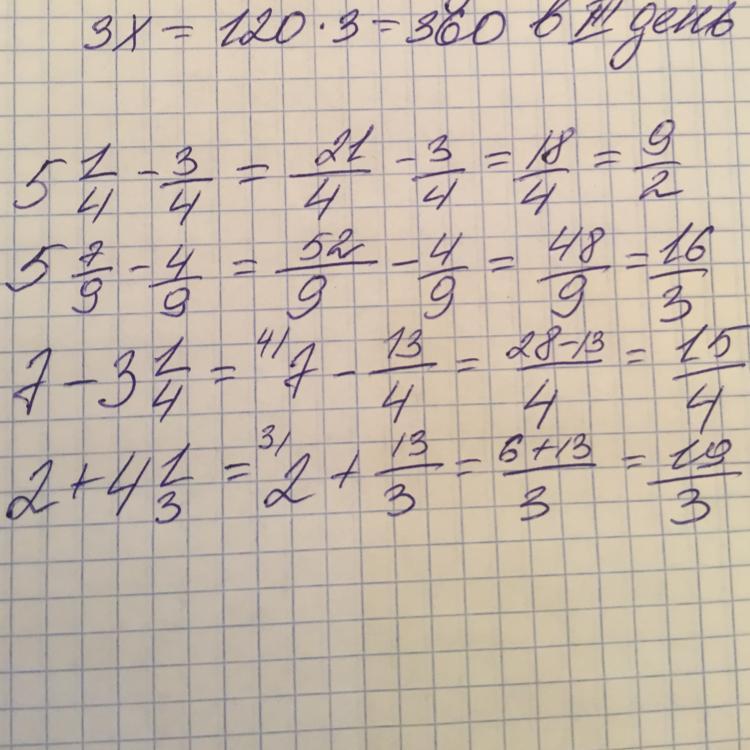 3x = 120 · 3 = 360 в III день
5 1/4 - 3/4 = 21/4 - 3/4 = 18/4 = 9/2
5 7/9 - 4/9 = 52/9 - 4/9 = 48/9 = 16/3
7 - 3 1/4 = 4) 7 - 13/4 = 28-13/4 = 15/4
2 + 4 1/3 = 3) 2 + 13/3 = 6+13/3 = 19/3